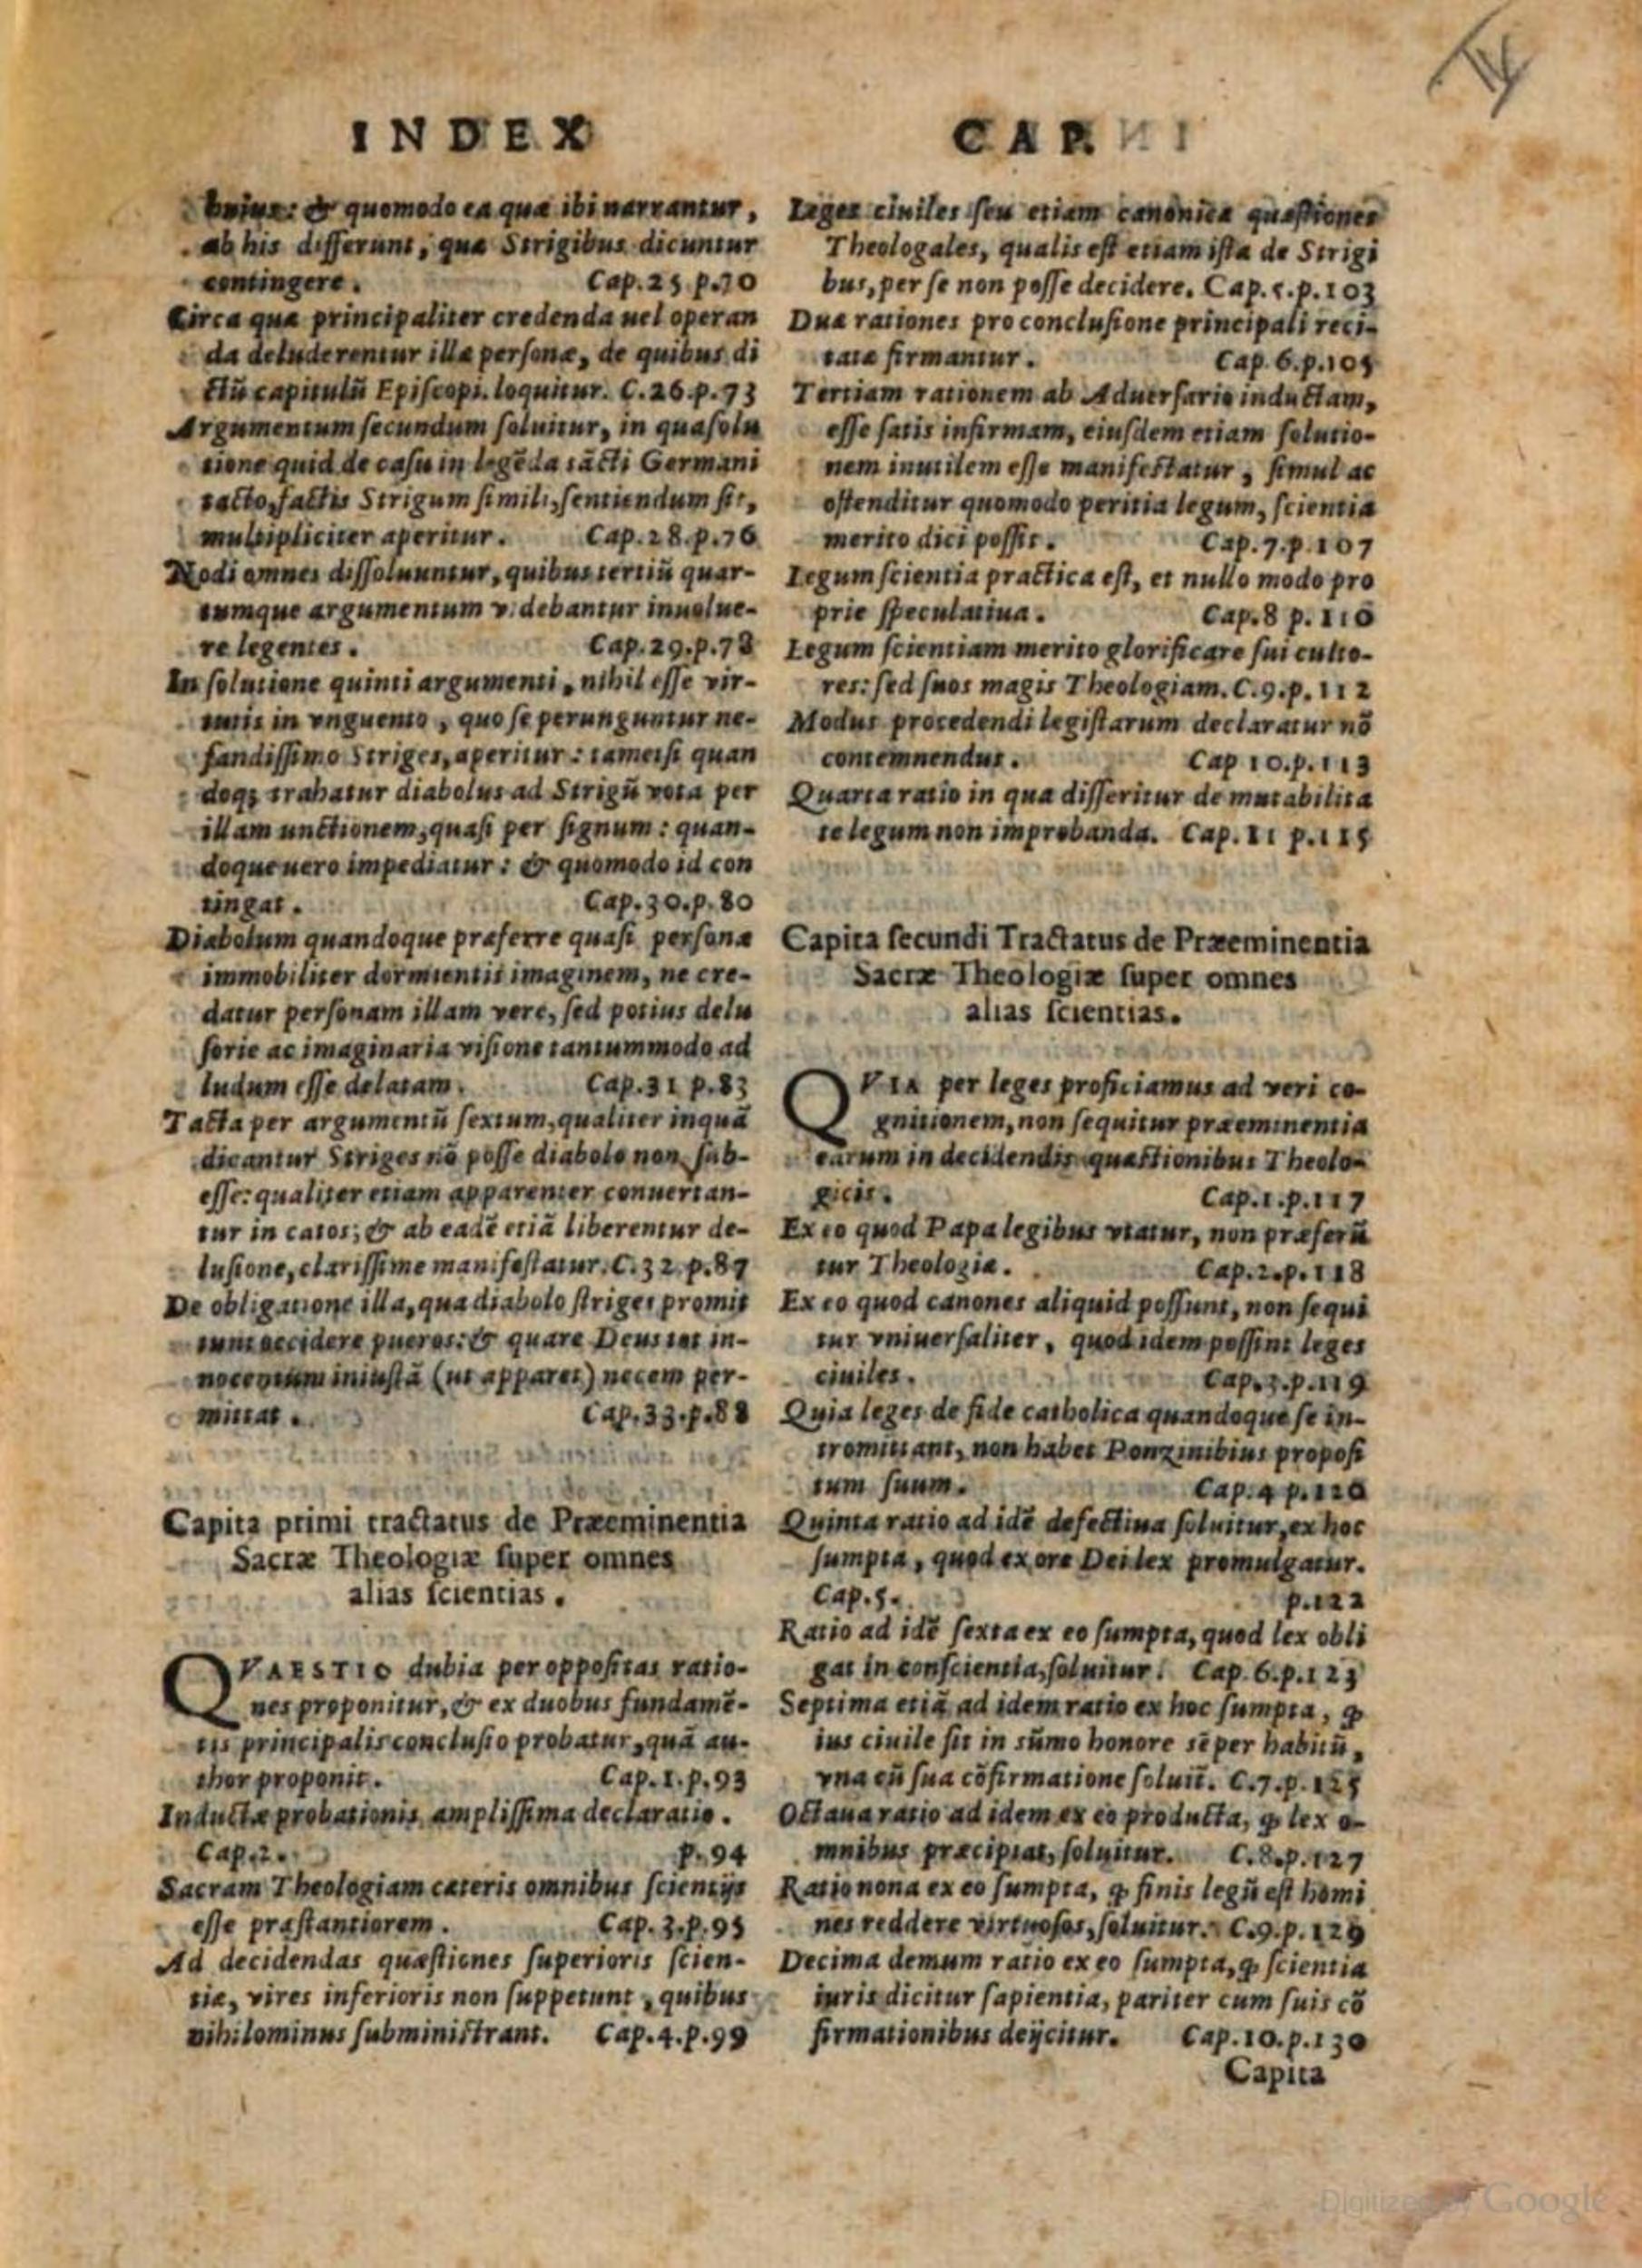 INDEX
huius: & quomodo ea quæ ibi narrantur,
ab his differunt, quæ Strigibus dicuntur
contingere. Cap.25 p.70
Circa quæ principaliter credenda uel operan
da deluderentur illæ personæ, de quibus di
ctũ capitulũ Episcopi. loquitur. C.26.p.73
Argumentum secundum soluitur, in qua solu
tione quid de casu in legẽda sãcti Germani
tacto, factis Strigum simili, sentiendum sit,
multipliciter aperitur. Cap.28.p.76
Nodi omnes dissoluuntur, quibus tertiũ quar-
tumque argumentum v.debantur inuolue-
re legentes. Cap.29.p.78
In solutione quinti argumenti, nihil esse vir-
tutis in vnguento, quo se perunguntur ne-
fandissimo Striges, aperitur: tametsi quan
doq; trahatur diabolus ad Strigũ vota per
illam unctionem, quasi per signum: quan-
doque uero impediatur: & quomodo id con
tingat. Cap.30.p.80
Diabolum quandoque præferre quasi personæ
immobiliter dormientis imaginem, ne cre-
datur personam illam vere, sed potius delu
sorie ac imaginaria visione tantummodo ad
ludum esse delatam. Cap.31 p.83
Tacta per argumentũ sextum, qualiter inquã
dicantur Striges nõ posse diabolo non sub-
esse: qualiter etiam apparenter conuertan-
tur in catos; & ab eadẽ etiã liberentur de-
lusione, clarissime manifestatur. C.32 p.87
De obligatione illa, qua diabolo striges promit
tunt occidere pueros: & quare Deus tot in-
nocentum iniustã (ut apparet) necem per-
mittat. Cap.33.p.88
Capita primi tractatus de Præeminentia
Sacræ Theologiæ super omnes
alias scientias.
QVAESTIO dubia per oppositas ratio-
nes proponitur, & ex duobus fundamẽ-
tis principalis conclusio probatur, quã au-
thor proponit. Cap.1.p.93
Inductæ probationis amplissima declaratio.
Cap.2. p.94
Sacram Theologiam cæteris omnibus scientijs
esse præstantiorem. Cap.3.p.95
Ad decidendas quæstiones superioris scien-
tiæ, vires inferioris non suppetunt, quibus
nihilominus subministrant. Cap.4.p.99
CAP.
Leges ciuiles seu etiam canonicæ quæstiones
Theologales, qualis est etiam ista de Strigi
bus, per se non posse decidere. Cap.5.p.103
Duæ rationes pro conclusione principali reci-
tatæ firmantur. Cap.6.p.105
Tertiam rationem ab Aduersario inductam,
esse satis infirmam, eiusdem etiam solutio-
nem inutilem esse manifestatur, simul ac
ostenditur quomodo peritia legum, scientia
merito dici possit. Cap.7.p.107
Legum scientia practica est, et nullo modo pro
prie speculatiua. Cap.8 p.110
Legum scientiam merito glorificare sui culto-
res: sed suos magis Theologiam. C.9.p.112
Modus procedendi legistarum declaratur nõ
contemnendus. Cap 10.p.113
Quarta ratio in qua disseritur de mutabilita
te legum non improbanda. Cap.11 p.115
Capita secundi Tractatus de Præeminentia
Sacræ Theologiæ super omnes
alias scientias.
QVIA per leges proficiamus ad veri co-
gnitionem, non sequitur præeminentia
earum in decidendis quæstionibus Theolo-
gicis. Cap.1.p.117
Ex eo quod Papa legibus vtatur, non præferũ
tur Theologiæ. Cap.2.p.118
Ex eo quod canones aliquid possunt, non sequi
tur vniuersaliter, quod idem possint leges
ciuiles. Cap.3.p.119
Quia leges de fide catholica quandoque se in-
tromittant, non habet Ponzinibius proposi
tum suum. Cap.4 p.120
Quinta ratio ad idẽ defectiua soluitur, ex hoc
sumpta, quod ex ore Dei lex promulgatur.
Cap.5. p.122
Ratio ad idẽ sexta ex eo sumpta, quod lex obli
gat in conscientia, soluitur. Cap.6.p.123
Septima etiã ad idem ratio ex hoc sumpta, ꝙ
ius ciuile sit in sũmo honore sẽper habitũ,
vna cũ sua cõfirmatione soluit̃. C.7.p.125
Octaua ratio ad idem ex eo producta, ꝙ lex o-
mnibus præcipiat, soluitur. C.8.p.127
Ratio nona ex eo sumpta, ꝙ finis legũ est homi
nes reddere virtuosos, soluitur. C.9.p.129
Decima demum ratio ex eo sumpta, ꝙ scientia
iuris dicitur sapientia, pariter cum suis cõ
firmationibus deijcitur. Cap.10.p.130
Capita
Digitized by Google